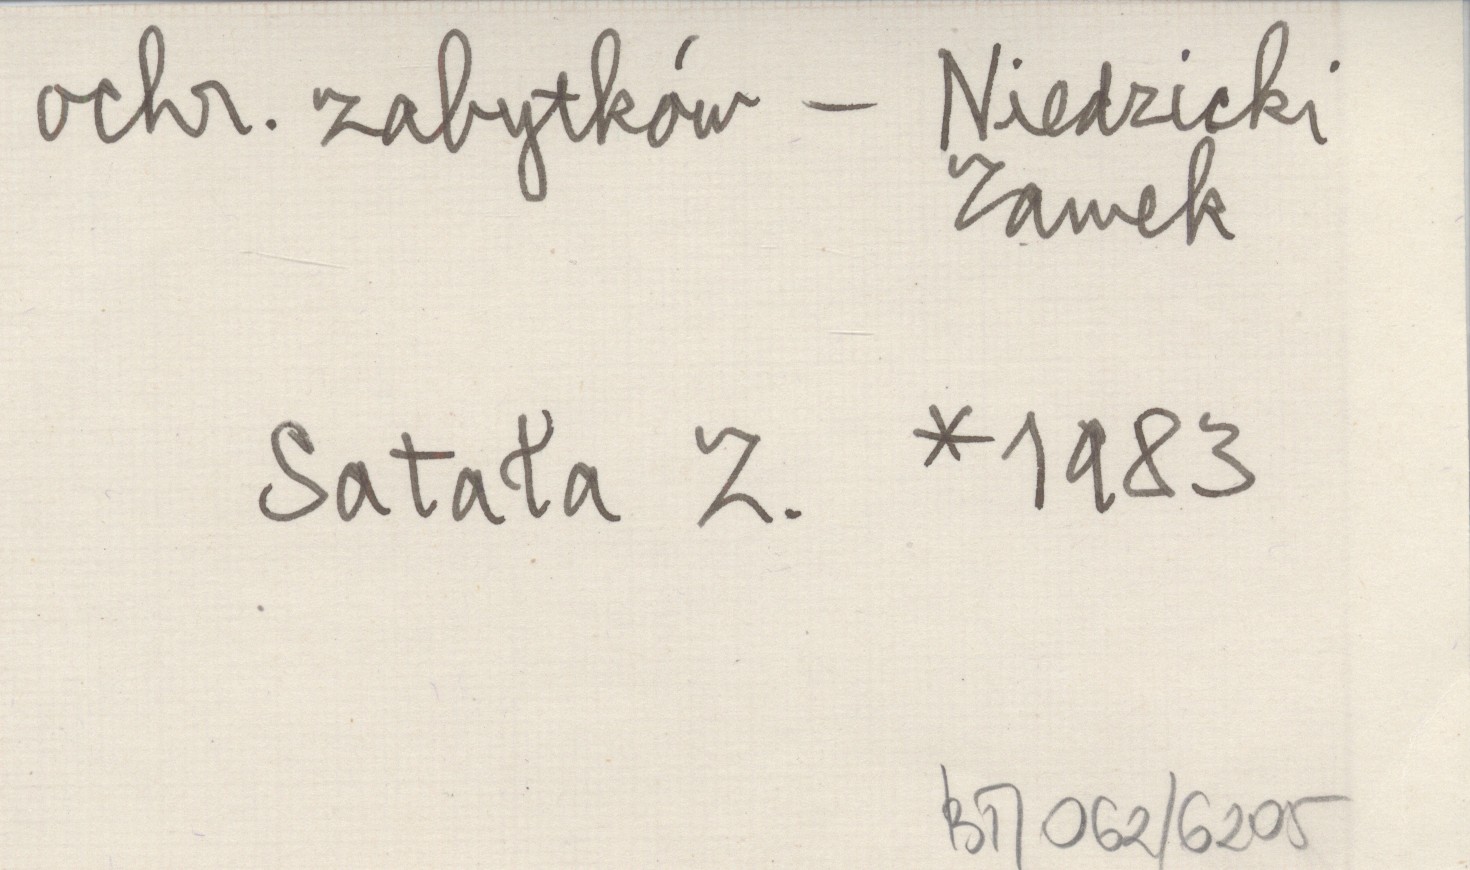 ochr. zabytków – Niedzicki
Zamek
Satała Z. *1983
BT/062/6205